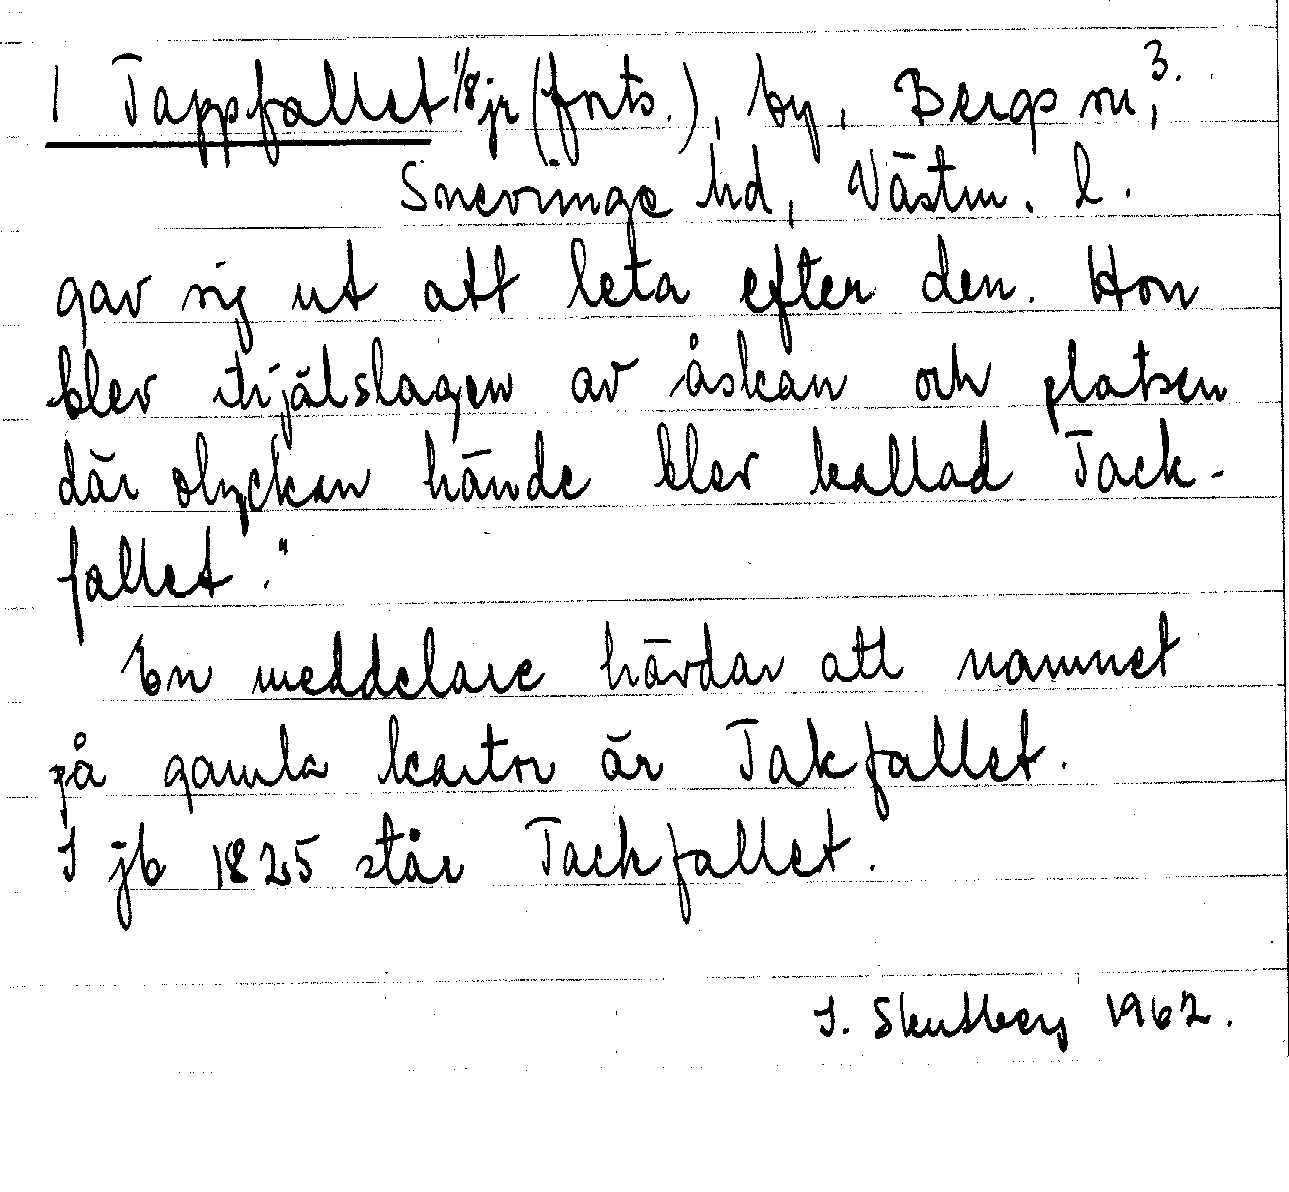 1 Tappfallet 1/8 jr (forts.), by, Bergs sn, 3.
Snevringe hd, Västm. l.
gav sig ut att leta efter den. Hon
blev ihjälslagen av åskan och platsen
där olyckan hände blev kallad Tack-
fallet."
En meddelare hävdar att namnet
på gamla kartor är Takfallet.
I jb 1825 står Tackfallet.
I. Skutberg 1962.